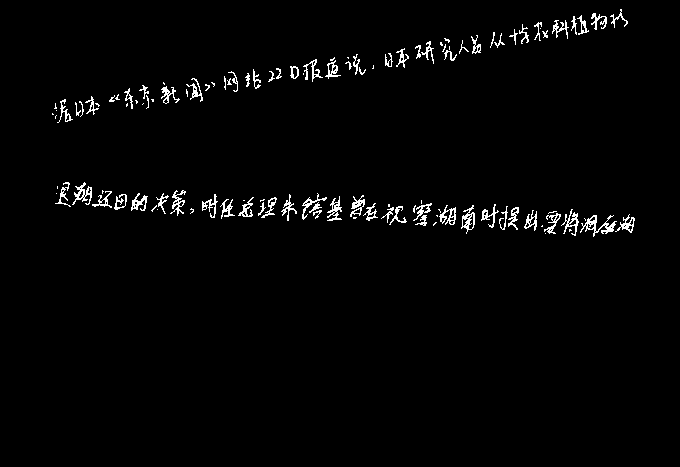 据日本《东京新闻》网站22日报道说,日本研究人员从十字花科植物拟
退湖还田的决策,时任总理朱镕基曾在视察湖南时提出要将洞庭湖